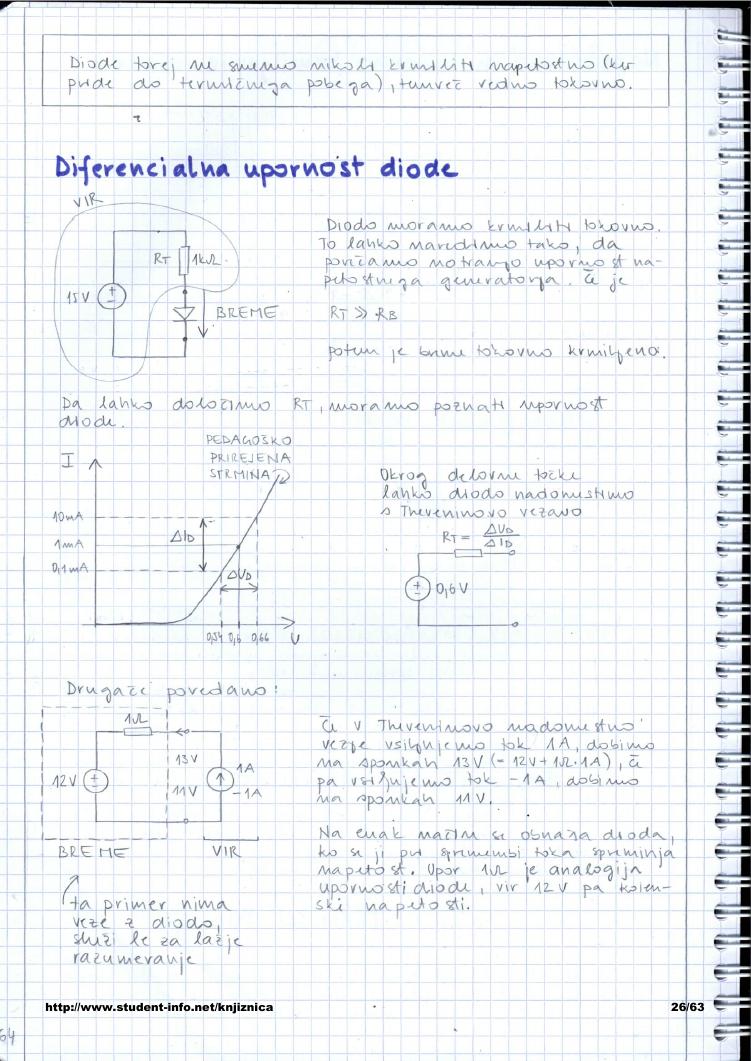 Diode torej ne smemo nikoli krmiliti napetostno (ker
pride do termičnega pobega), temveč vedno tokovno.
Diferencialna upornost diode
VIR
RT
1kΩ
15V
BREME
Diodo moramo krmiliti tokovno.
To lahko naredimo tako, da
povečamo notranjo upornost na-
petostnega generatorja. Če je
RT ≫ RB
potem je breme tokovno krmiljeno.
Da lahko določimo RT, moramo poznati upornost
diode.
PEDAGOŠKO
PRIREJENA
STRMINA
I
10mA
1mA
0,1mA
ΔID
ΔUD
0,54 0,6 0,66 U
Okrog delovne točke
lahko diodo nadomestimo
s Theveninovo vezavo
RT = ΔUD / ΔID
0,6V
Drugače povedano:
1Ω
12V
13V
11V
1A
-1A
BREME
VIR
ta primer nima
veze z diodo,
služi le za lažje
razumevanje
Če v Theveninovo nadomestno
vezje vsiljujemo tok 1A, dobimo
na sponkah 13V (= 12V + 1Ω·1A), če
pa vsiljujemo tok -1A, dobimo
na sponkah 11V.
Na enak način se obnaša dioda,
ko se ji pri spremembi toka spreminja
napetost. Upor 1Ω je analogija
upornosti diode, vir 12V pa kolen-
ski napetosti.
http://www.student-info.net/knjiznica
26/63
64